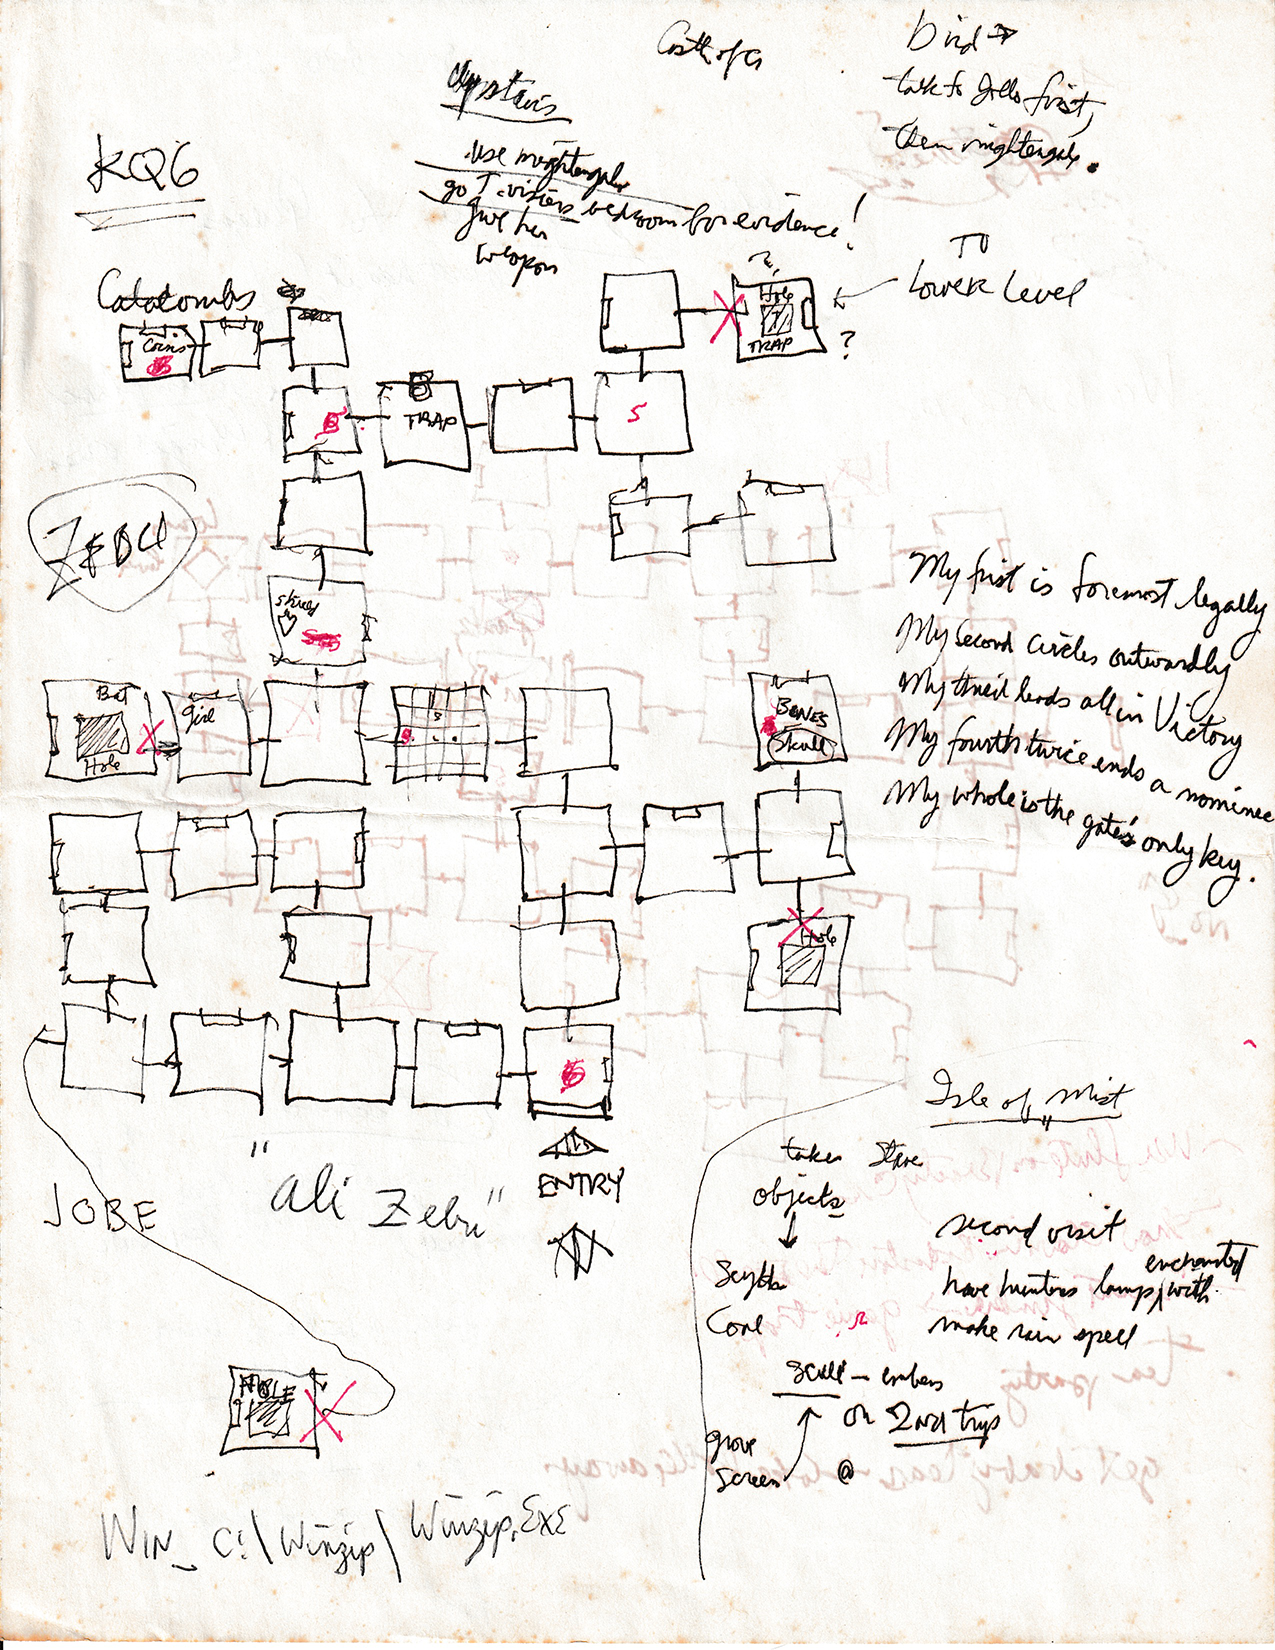 Bird →
talk to Jollo first,
then nightengale.
Upstairs
use nightengale
go T. visiers bedroom for evidence!
give her
weapon
KQ6
TO
Lower Level
Catacombs
Coins
?
Hole
TRAP
?
B
TRAP
S
ZEBU
shield
My first is foremost legally
My second circles outwardly
My third leads all in Victory
My fourth twice ends a nominee
My whole is the gate's only key.
Bat
Hole
girl
BONES
Skull
Hole
Isle of Mist
"ali Zebu"
ENTRY
JOBE
takes stare
objects
↓
Scythe
Coal
second visit
have hunters lamp, with enchanted
make rain spell
scull - embers
on 2nd trip
grove
screen
@
HOLE
WIN_ C:\Winzip\Winzip.EXE